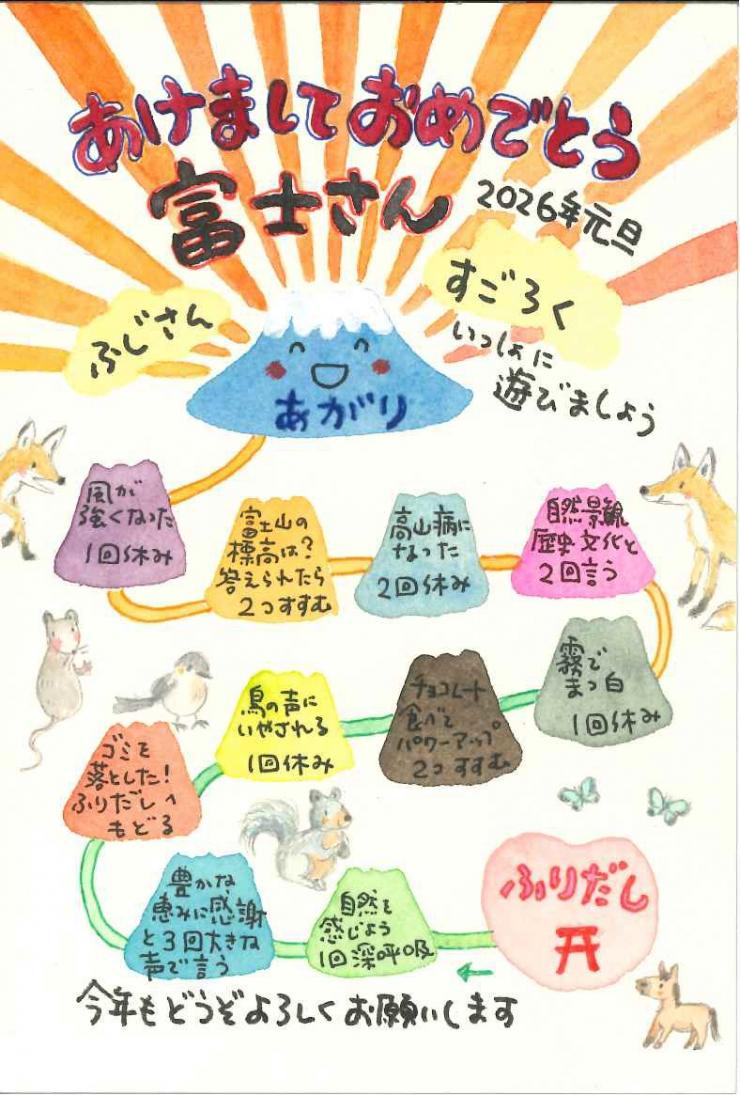 あけましておめでとう
富士さん
2026年元旦
ふじさん
すごろく
いっしょに
遊びましょう
あがり
風が
強くなった
1回休み
富士山の
標高は？
答えられたら
2つすすむ
高山病に
なった
2回休み
自然景観
歴史文化と
2回言う
霧で
まっ白
1回休み
チョコレート
食べて
パワーアップ
2つすすむ
鳥の声に
いやされる
1回休み
ゴミを
落とした！
ふりだしへ
もどる
豊かな
恵みに感謝
と3回大きな
声で言う
自然を
感じよう
1回深呼吸
ふりだし
今年もどうぞよろしくお願いします